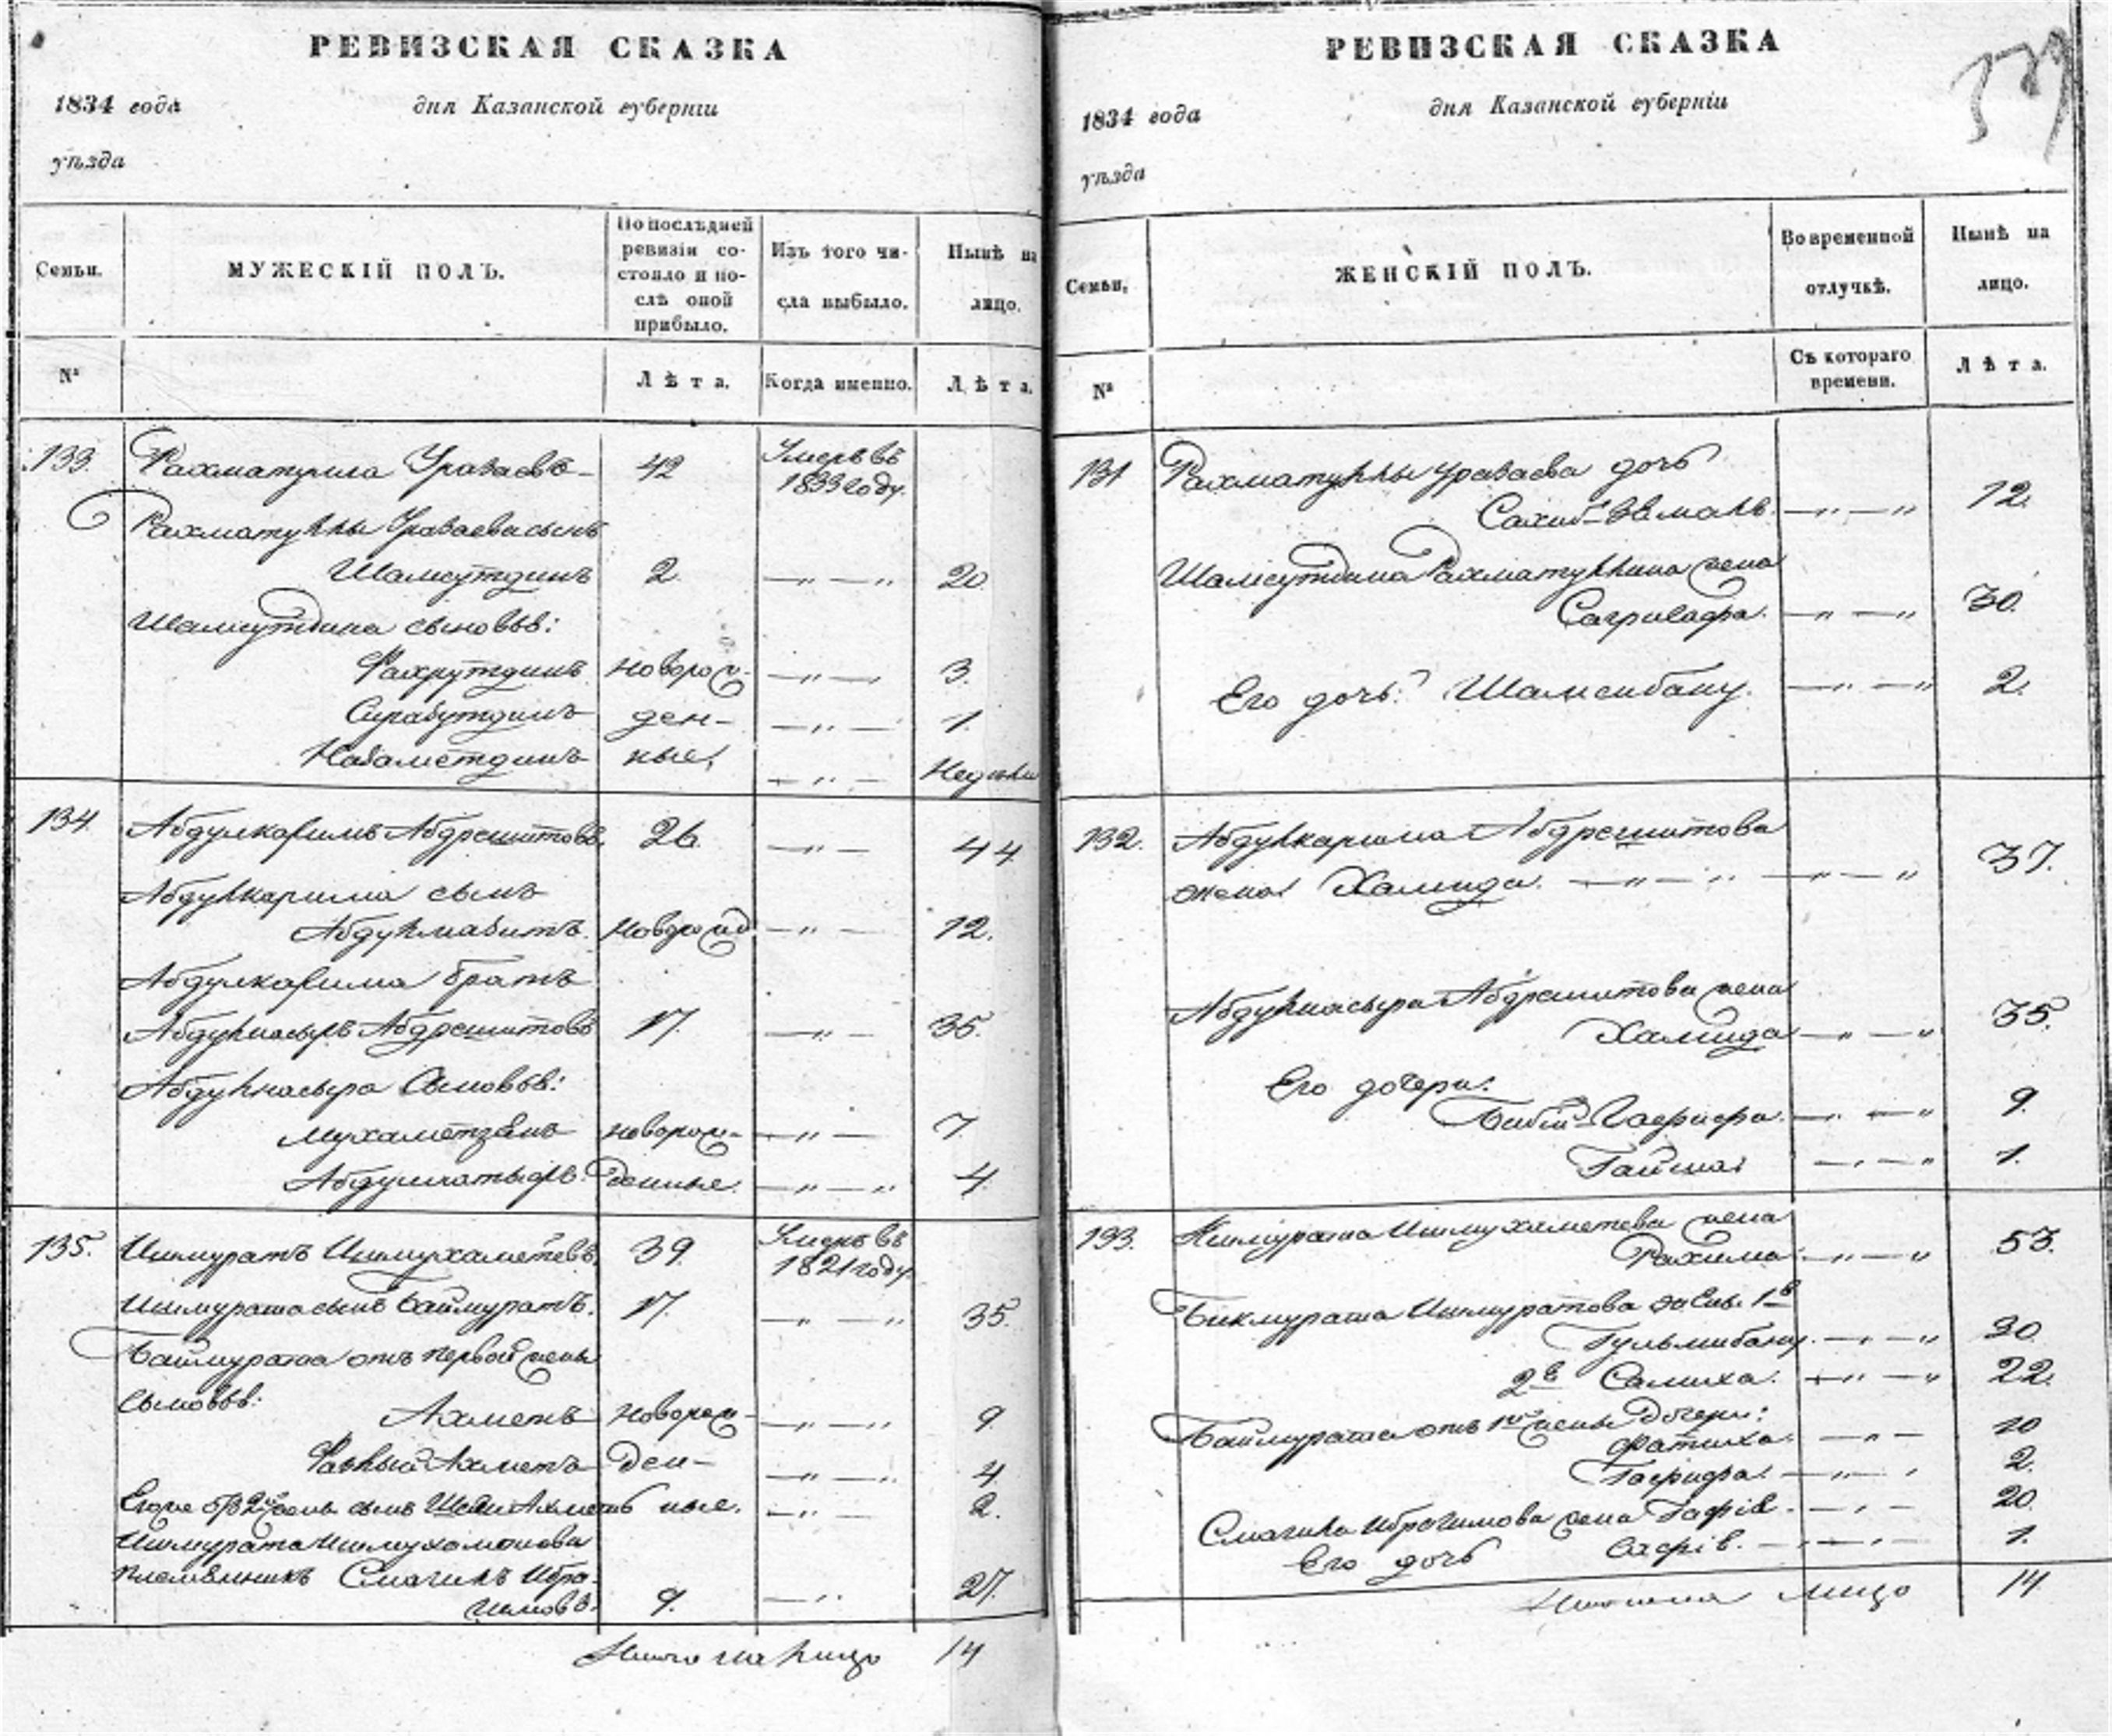 РЕВИЗСКАЯ СКАЗКА
1834 года дня Казанской губерніи
уѣзда
Семьи.
МУЖЕСКІЙ ПОЛЪ.
По послѣдней
ревизіи со-
стояло и по-
слѣ оной
прибыло.
Изъ того чи-
сла выбыло.
Нынѣ на
лицо.
№
Лѣта.
Когда именно.
Лѣта.
133. Рахматулла Уразаевъ 42 Умеръ въ
1833 году.
Рахматуллы Уразаева сынъ
Шамсутдинъ 2. —„—„ 20
Шамсутдина сыновья:
Фахрутдинъ новорож- —„— 3.
Сирабутдинъ ден- —„— 1.
ные, —„— Недѣли
134. Абдулкаримъ Абдрешитовъ 26. —„— 44
Абдулкарима сынъ
новорожд —„— 12.
Абдулкарима братъ
Абдулнасыръ Абдрешитовъ 17. —„— 35.
Абдулнасыра Сыновья:
Мухаметзянъ новорож- —„— 7.
денные. —„—„ 4.
135. Ишмуратъ Ишмухаметевъ 39. Умеръ въ
1821 году.
Ишмурата сынъ Баймуратъ. 17. —„—„ 35.
Баймурата отъ первой жены
сыновья:
Ахметъ новорож- —„—„ 9.
Ахметъ ден- —„—„ 4.
сынъ Ахметъ ные. —„— 2.
Ишмурата
племянникъ Смагилъ Ибра-
имовъ. 9. —„ 27.
Итого на лицо 14
РЕВИЗСКАЯ СКАЗКА
1834 года дня Казанской губерніи
уѣзда
Семьи.
ЖЕНСКІЙ ПОЛЪ.
Во временной
отлучкѣ.
Нынѣ на
лицо.
№
Съ котораго
времени.
Лѣта.
131 Рахматуллы Уразаева дочь
—„—„ 12.
Шамсутдина Рахматуллина жена
—„—„ 30.
Его дочь: Шамсибану. —„—„ 2.
132. Абдулкарима Абдрешитова
жена Хамида. —„—„ —„—„ 37.
Абдулнасыра Абдрешитова жена
Хамида —„—„ 35.
Его дочери:
—„—„ 9.
Гайша —„—„ 1.
133. Ишмурата Ишмухаметева жена
Рахима —„—„ 53.
Ишмуратова жены 1я
Гульмибану. —„—„ 30
2я Салиха. —„—„ 22.
Баймурата отъ 1й жены Дочери:
Фатиха. —„— 10
—„— 2.
Смагила Ибрагимова жена —„— 20.
Его дочь —„— 1.
Итого на лицо 14